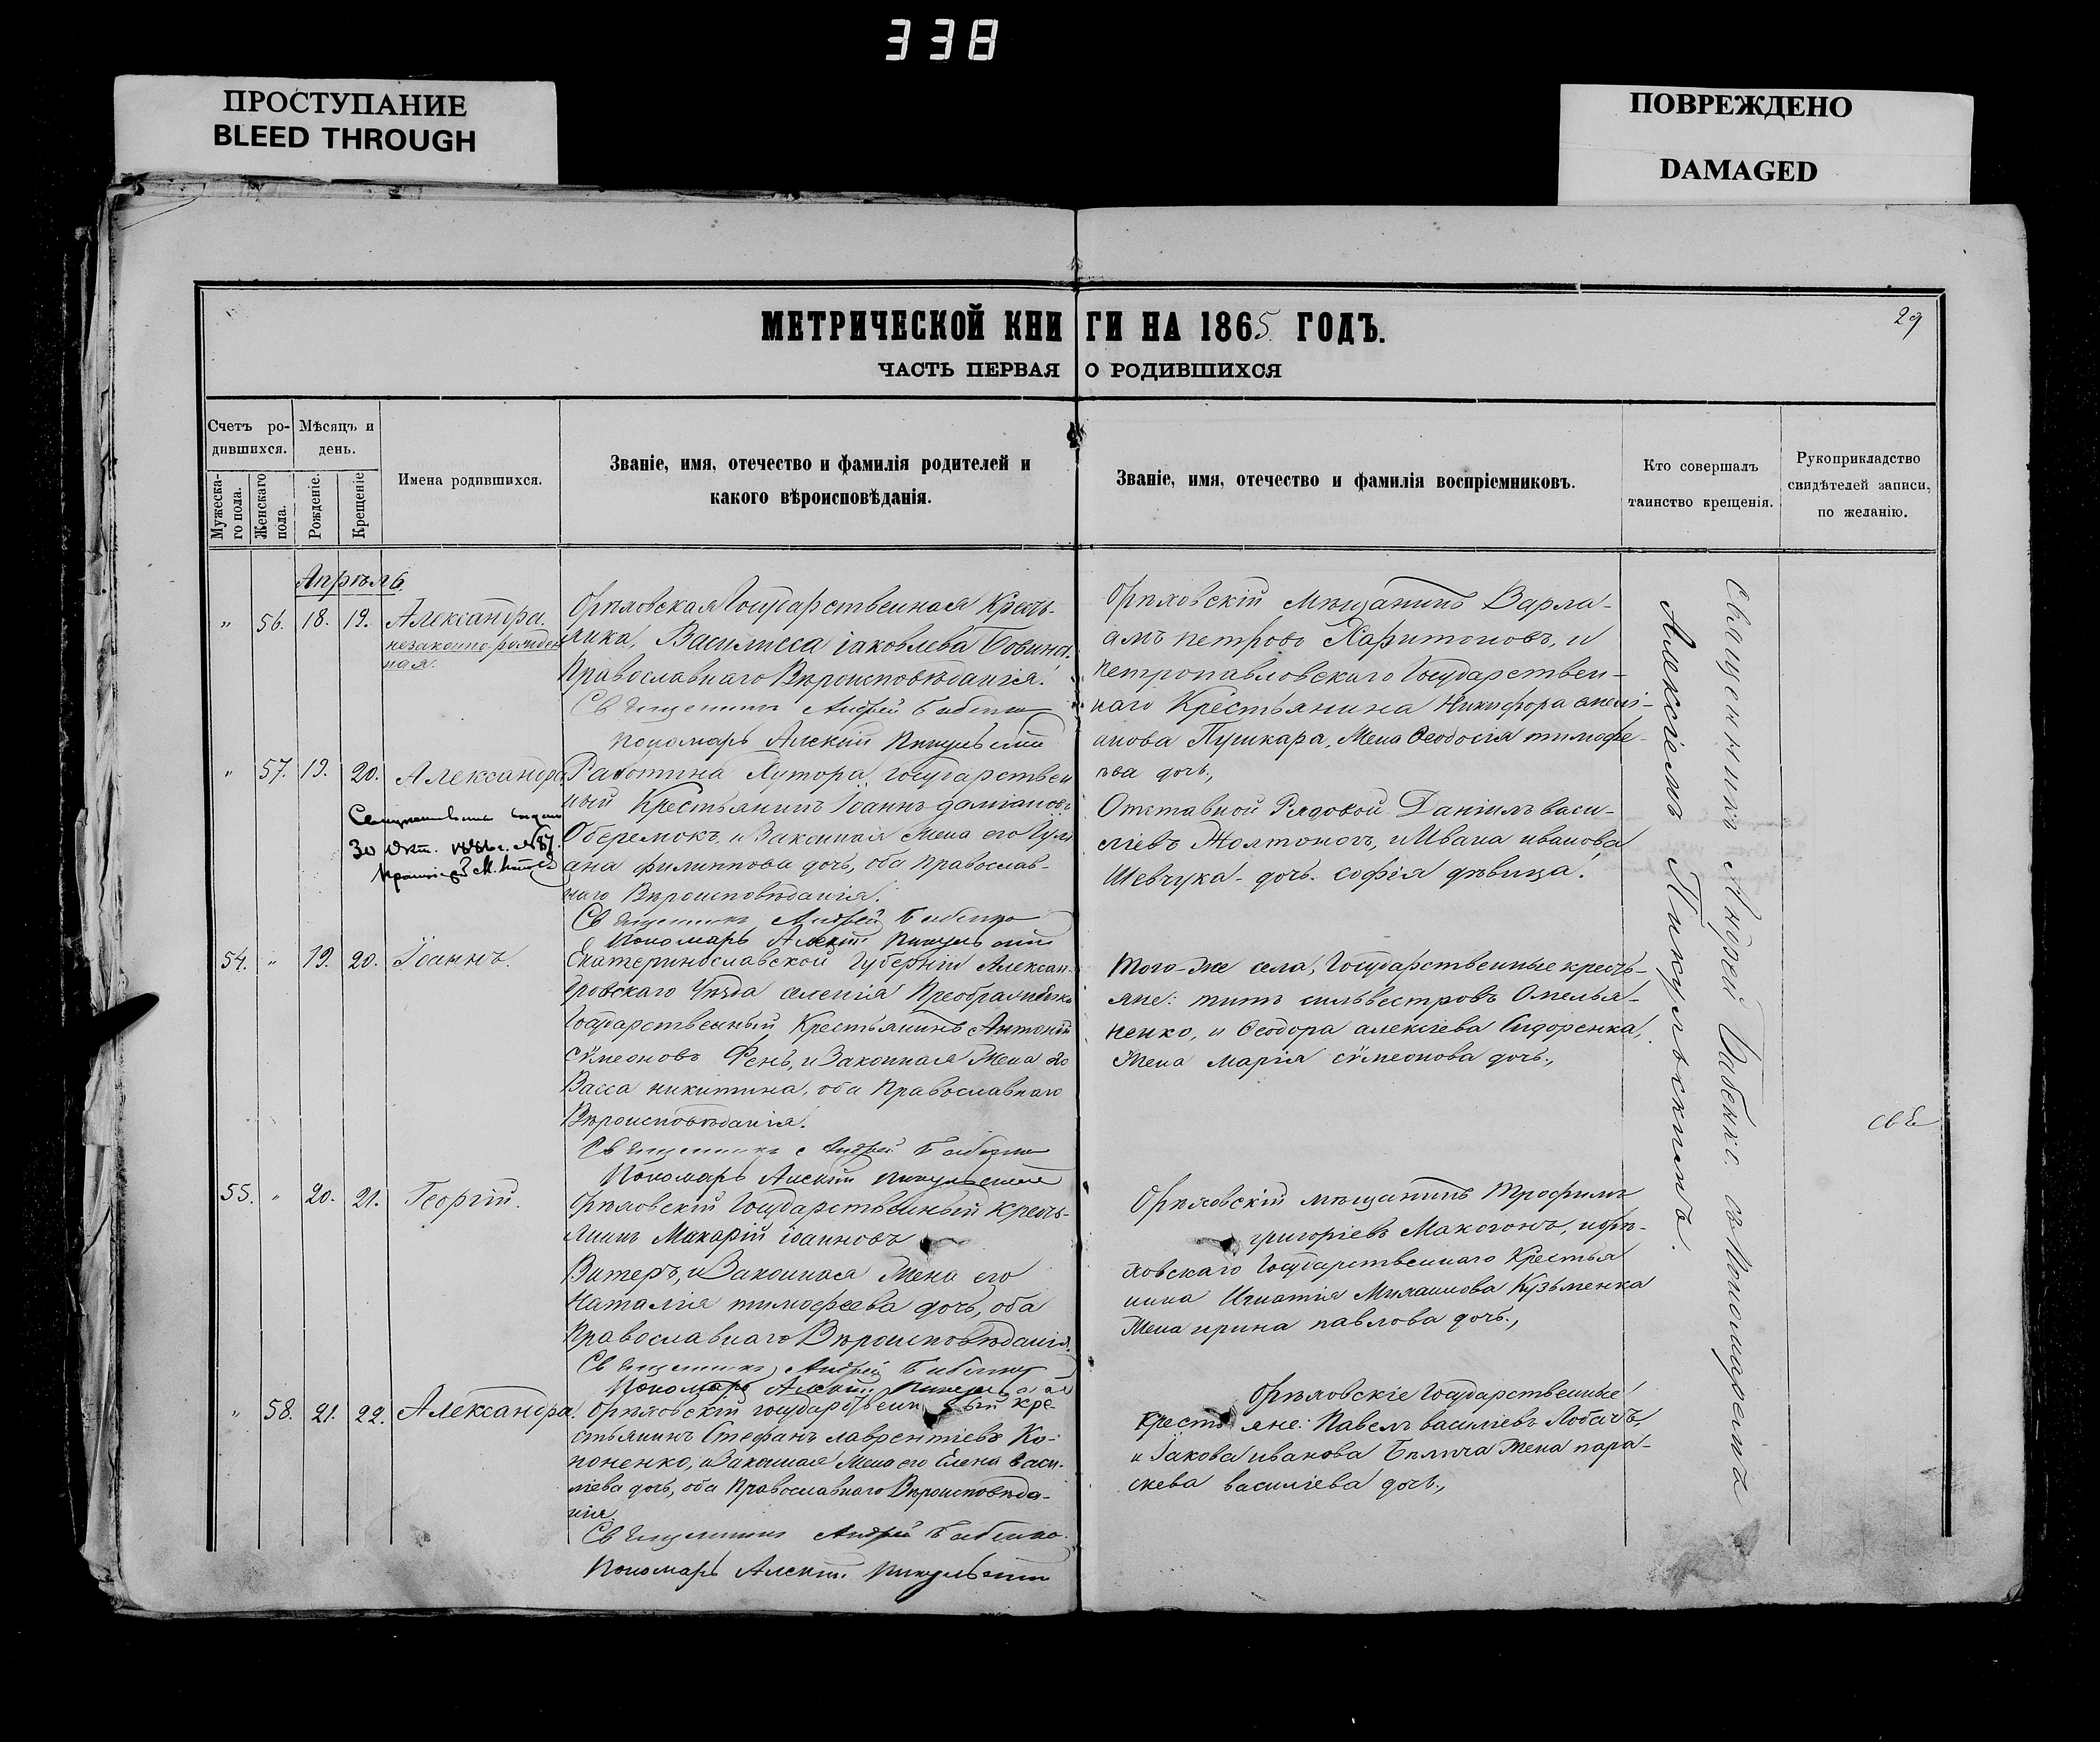 338
ПРОСТУПАНИЕ
BLEED THROUGH
ПОВРЕЖДЕНО
DAMAGED
29
МЕТРИЧЕСКОЙ КНИГИ НА 1865 ГОДЪ.
ЧАСТЬ ПЕРВАЯ О РОДИВШИХСЯ
Счетъ ро-
дившихся.
Мужеска-
го пола.
Женскаго
пола.
Мѣсяцъ и
день.
Рожденіе.
Крещеніе
Имена родившихся.
Званіе, имя, отечество и фамилія родителей и
какого вѣроисповѣданія.
Званіе, имя, отечество и фамилія воспріемниковъ.
Кто совершалъ
таинство крещенія.
Рукоприкладство
свидѣтелей записи,
по желанію.
Апрѣля
" 56. 18. 19. Александра.
незаконно-рожден
ная.
Орѣховская Государственная Кресть-
янка, Василисса іаковлева
Православнаго Вѣроисповѣданія.
Священникъ Андрей Бабенко
Пономарь Алексій Пикульскій
Орѣховскій Мѣщанинъ Варла-
амъ петровъ Харитоновъ, и
петропавловскаго Государствен-
наго Крестьянина Никифора
Пушкара, Жена Ѳеодосія тимофе-
ева дочь.,
" 57. 19. 20. Александра
30 Окт. №87.
Хутора государствен
ный Крестьянинъ Іоаннъ даміановъ
Оберемокъ, и Законная Жена его Іулі
ана филиппова дочь, оба Православ-
наго Вѣроисповѣданія.
Священникъ Андрей Бабенко
Пономарь Алексій Пикульскій
Отставной Рядовой Даніилъ васи-
ліевъ Жолтоногъ, и Ивана иванова
Шевчука - дочь. софія дѣвица.
54. " 19. 20. Іоаннъ.
Екатеринославской Губерніи Алексан-
дровскаго Уѣзда селенія
Государственный Крестьянинъ Антоній
сѵмеоновъ Фень, и Законная Жена его
Васса никитина, оба Православнаго
Вѣроисповѣданія.
Священникъ Андрей Бабенко
Пономарь Алексій Пикульскій
Того-же села, Государственные кресть-
яне: титъ сильвестровъ Омелья-
ненко, и Ѳеодора алексіева Сидоренка,
Жена марія сѵмеонова дочь.,
55. " 20. 21. Георгій.
Орѣховскій Государственный кресть-
янинъ Макарій іоанновъ
Витеръ, и Законная Жена его
Наталія тимофеева дочь, оба
Православнаго Вѣроисповѣданія.
Священникъ Андрей Бабенко
Пономарь Алексій Пикульскій
Орѣховскій мѣщанинъ Трофимъ
григоріевъ Макогонъ, и орѣ-
ховскаго Государственнаго Крестья
нина Игнатія Михаилова Кузьменка
Жена ирина павлова дочь.,
" 58. 21. 22. Александра.
Орѣховскій государственный кре-
стьянинъ Стефанъ лаврентіевъ Ко-
ноненко, и Законная Жена его Елена васи-
ліева дочь, оба Православнаго Вѣроисповѣда-
нія.
Священникъ Андрей Бабенко.
Пономарь Алексій Пикульскій
Орѣховскіе Государственные
Крестьяне: Павелъ василіевъ Лобачъ,
и Іакова иванова Бѣлича Жена пара-
скева василіева дочь.,
Священникъ Андрей Бабенко. съ Пономаремъ
Алексіемъ Пикульскимъ.